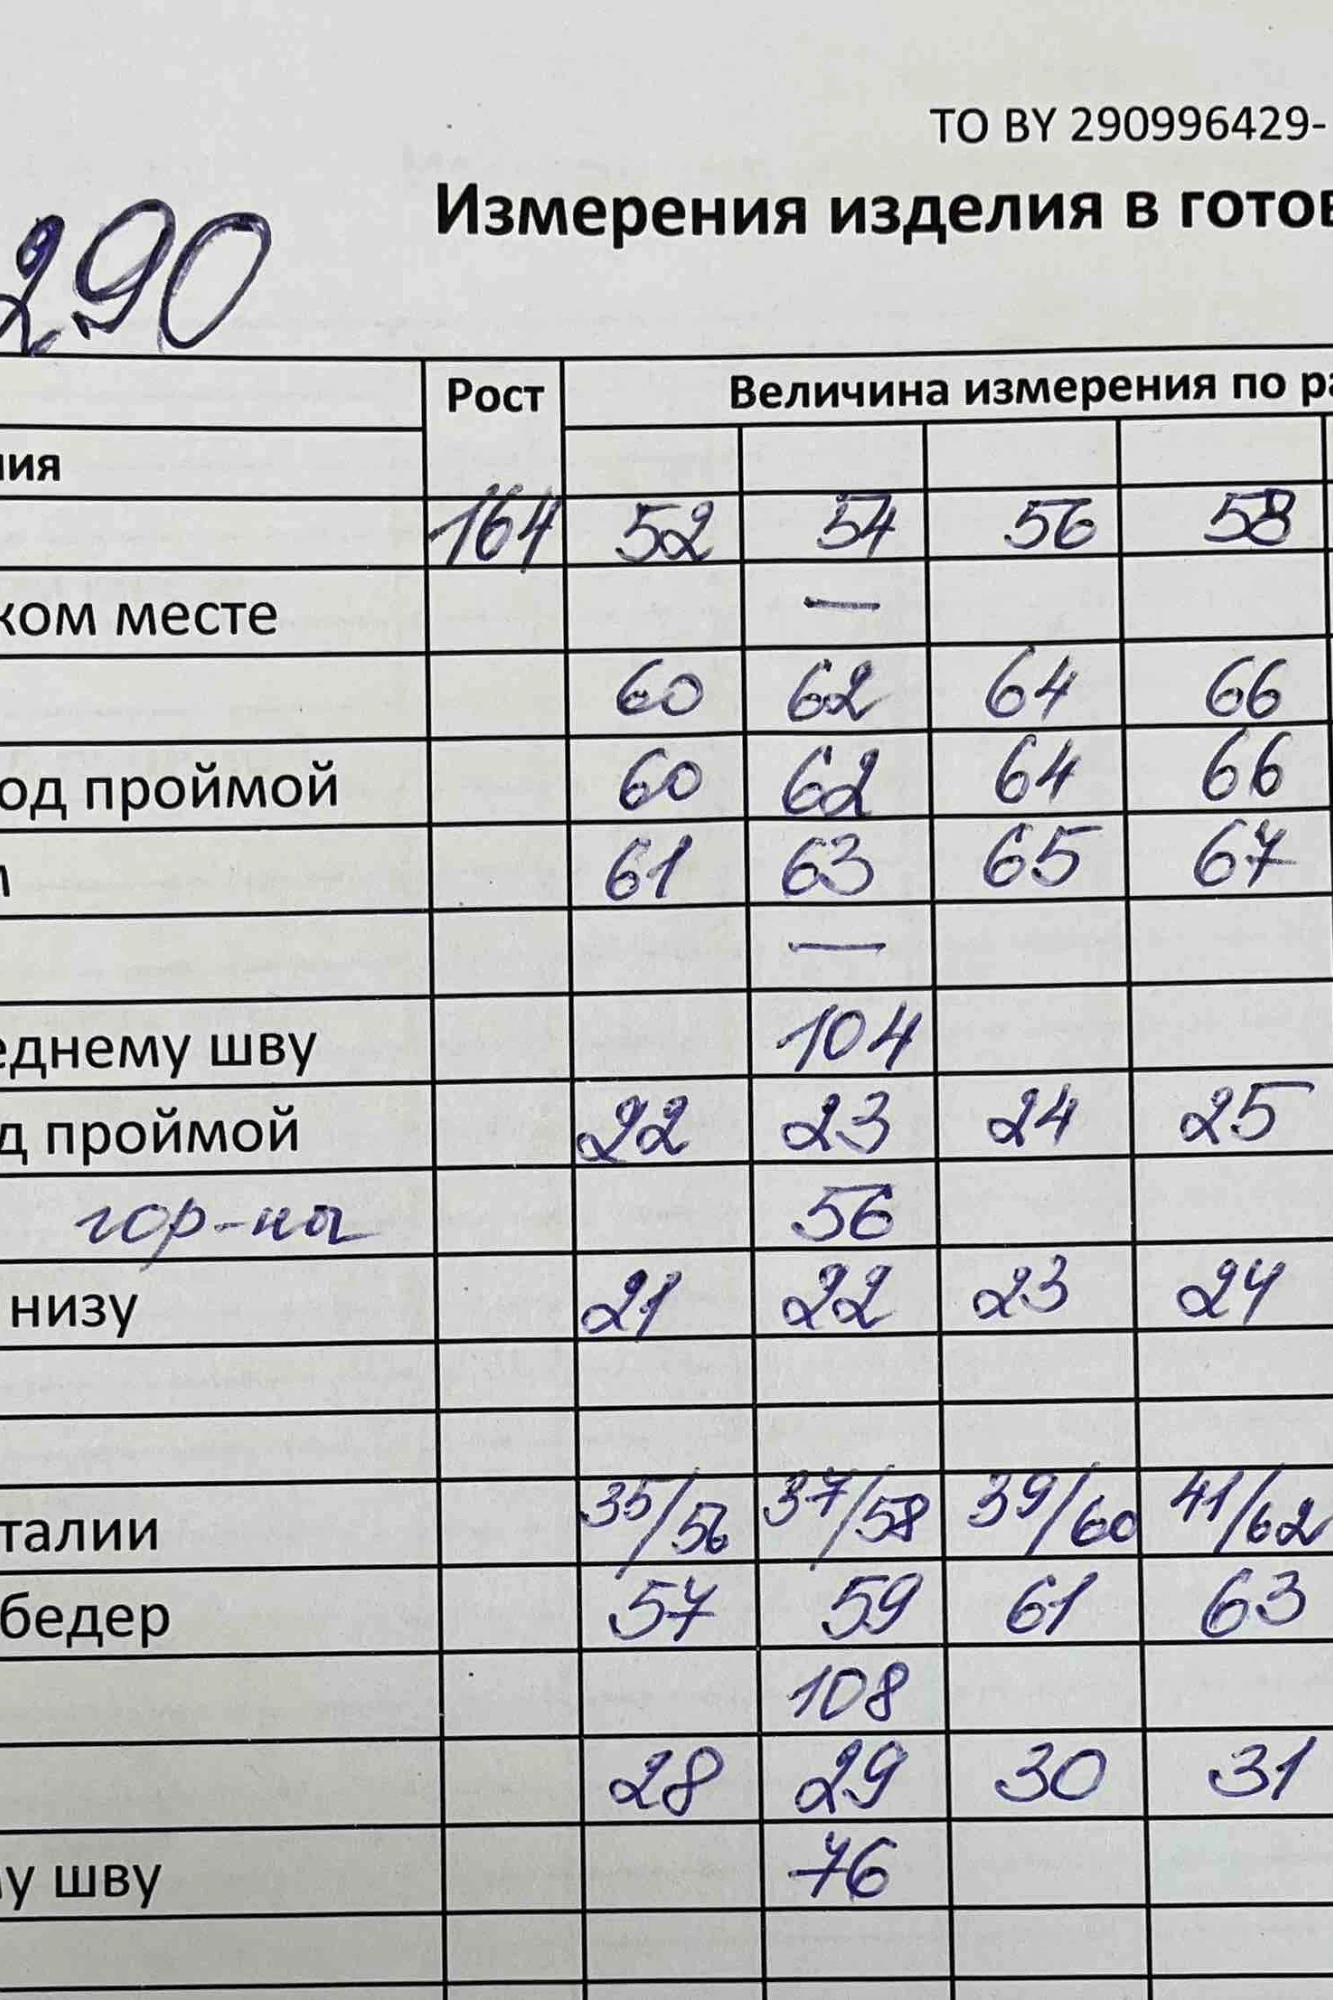 ТО BY 290996429-
Измерения изделия в готов
290
Рост Величина измерения по ра
ния
164 52 54 56 58
ком месте —
60 62 64 66
од проймой 60 62 64 66
61 63 65 67
—
еднему шву 104
д проймой 22 23 24 25
гор-ны 56
низу 21 22 23 24
талии 35/56 37/58 39/60 41/62
бедер 57 59 61 63
108
28 29 30 31
у шву 76